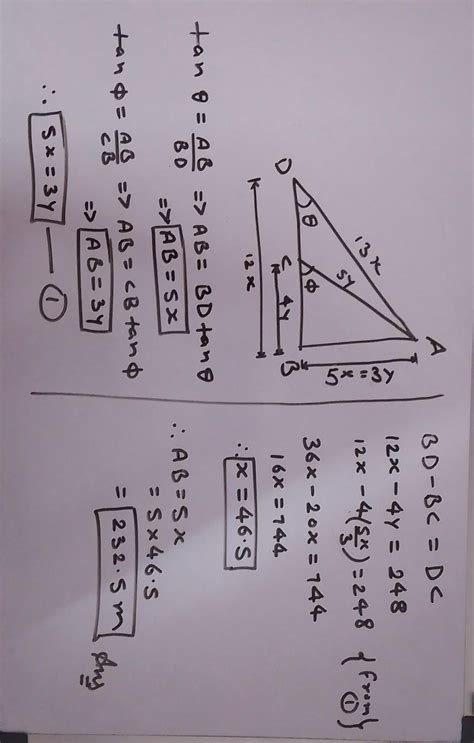 A
13x
5y
5x=3y
D
θ
C
ϕ
B
4y
12x
tan θ = AB/BD => AB = BD tan θ
=> AB = 5x
tan ϕ = AB/CB => AB = CB tan ϕ
=> AB = 3y
∴ 5x = 3y — ①
BD - BC = DC
12x - 4y = 248
12x - 4(5x/3) = 248 {from ①}
36x - 20x = 744
16x = 744
∴ x = 46.5
∴ AB = 5x
= 5x46.5
= 232.5m Ans